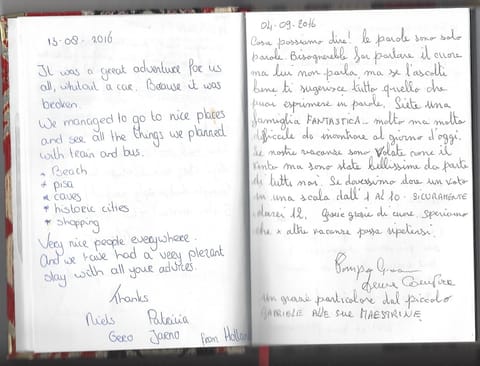 13-08-2016
It was a great adventure for us
all, whitout a car. Because it was
broken.
We managed to go to nice places
and see all the things we planned
with train and bus.
* Beach
* pisa
* caves
* historic cities
* shopping
Very nice people everywhere.
And we have had a very plezant
stay with all your advices.
Thanks
Niels Patricia
Gero Jarno from Holland
04-09-2016
Cosa possiamo dire! le parole sono solo
parole Bisognerebbe far parlare il cuore
ma lui non parla, ma se l'ascolti
bene ti suggerisce tutto quello che
puoi esprimere in parole. Siete una
famiglia FANTASTICA. molto ma molto
difficile da incontrare al giorno d'oggi.
Le nostre vacanze sono volate come il
vento ma sono state bellissime da parte
di tutti noi. Se dovessimo dare un voto
in una scala dall' 1 al 10. SICURAMENTE
darei 12. Grazie grazie di cuore. Speriamo
che x altre vacanze possa ripetersi.
un grazie particolare dal piccolo
GABRIELE ALLE sue MAESTRINE